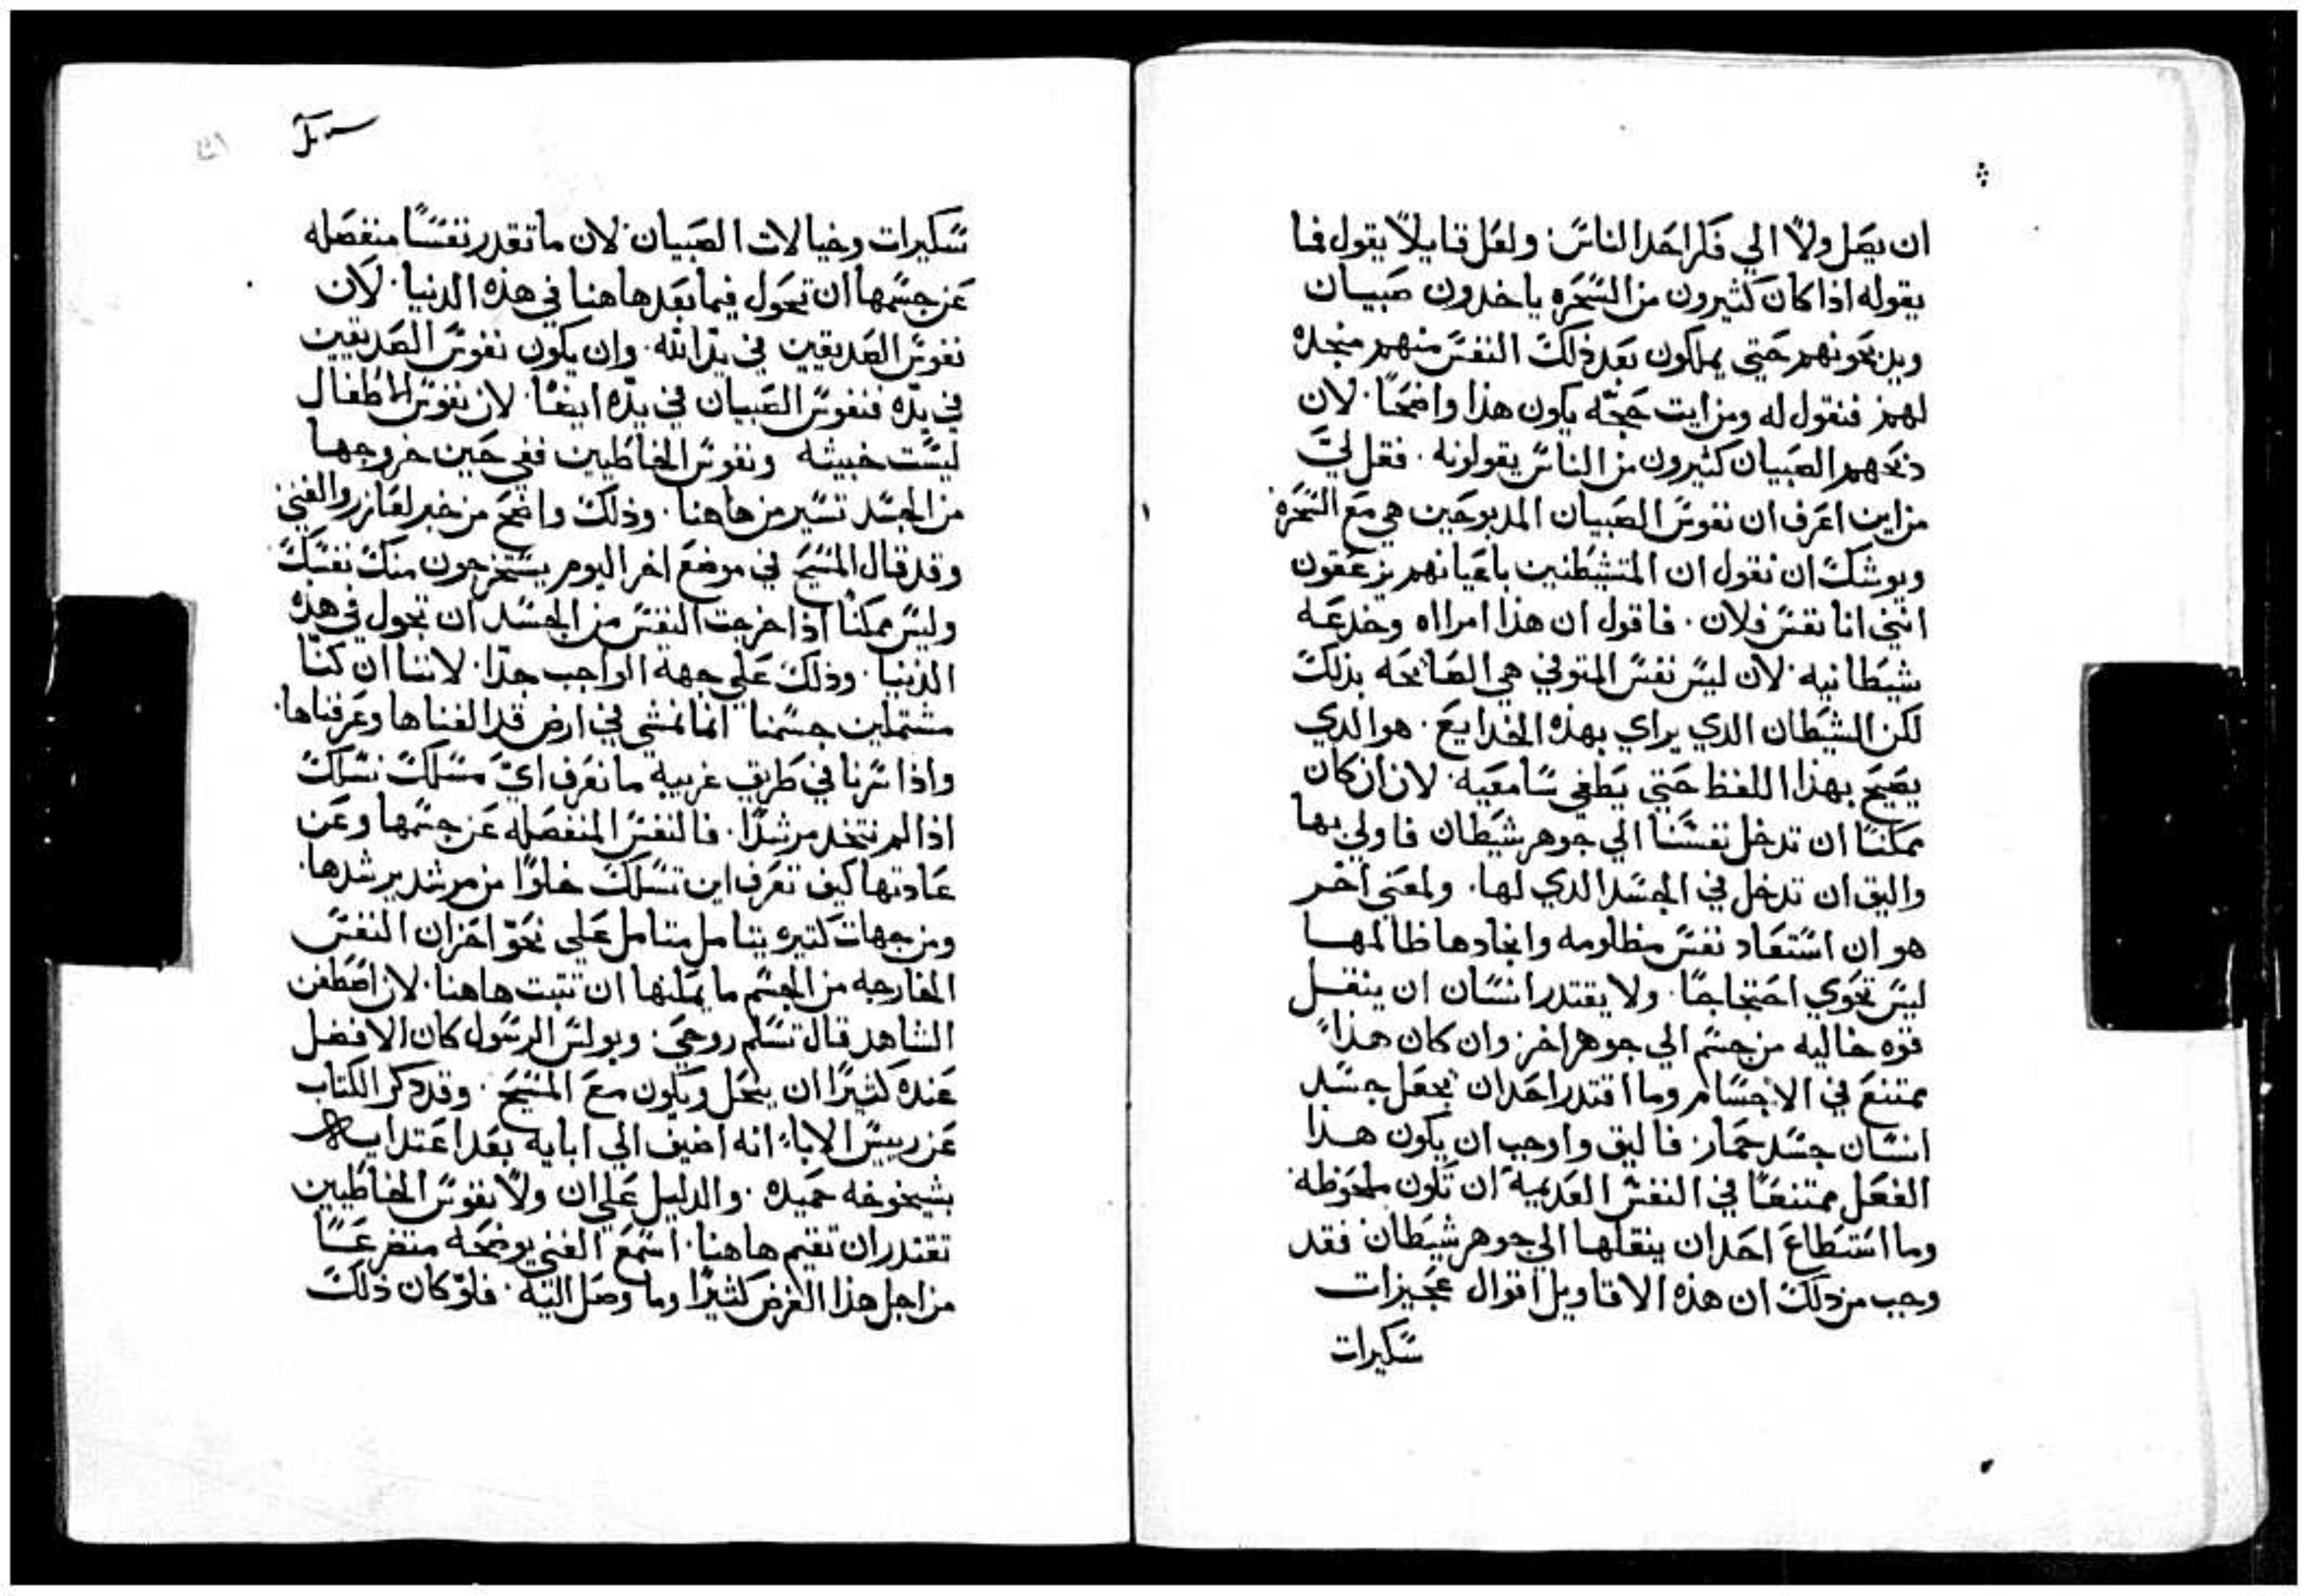 ان يصل ولا الي فكر احد الناس. ولعل قايلاً يقول فما
يقوله اذا كان كثيرون من السحره ياخدون صبيان
ويدبحونهم حتي يملكون بعد ذلك النفس منهم منجده
لهم. فنقول له ومن ايت حجّه يكون هذا واضحًا. لان
ذبحهم الصبيان كثيرون من الناس يقولونه. فقل ليَ
من اين اعرف ان نفوس الصبيان المدبوحين هي مع السحره.
ويوشك ان نقول ان المتشيطنين باعيانهم يزعقون
انني انا نفس فلان. فاقول ان هذا امرااه وخدعه
شيطانيه. لان ليس نفس المتوفي هي الصايحه بذلك
لكن الشيطان الدي يراي بهذه الخدايع. هو الدي
يصيح بهذا اللفظ حتي يطغي سامعيه. لان ان كان
ممكنًا ان تدخل نفسنا الي جوهر شيطان فاولي بها
واليق ان تدخل في الجسد الدي لها. ولمعني اخر
هو ان استعاد نفس مظلومه وانجادها ظالمها
ليس تحوي احتجاجًا. ولا يقتدر انسان ان ينقل
قوه خاليه من جسم الي جوهر اخر. وان كان هذاً
ممتنع في الاجسام وما اقتدر احد ان يجعل جسد
انسان جسد حمار. فاليق واوجب ان يكون هذا
الفعل ممتنعًا في النفس العديمة ان تكون ملحوظه.
وما استطاع احد ان ينقلها الي جوهر شيطان فقد
وجب من دلك ان هذه الاقاويل اقوال عجيزات
سكيرات
سكيرات وخيالات الصبيان. لان ما تقدر نفسًا منفصله
عن جسمها ان تجول فيما بعد هاهنا في هذه الدنيا. لان
نفوس الصديقين في يد الله. وان يكون نفوس الصديقين
في يدّه فنفوس الصبيان في يدّه ايضًا. لان نفوس الاطفال
ليست خبيثه ونفوس الخاطيين ففي حين خروجها
من الجسد تسير من هاهنا. وذلك واضح من خبر لعازر والغني.
وقد قال المسيح في موضع اخر اليوم يستخرجون منك نفسك
وليس ممكنًا اذا خرجت النفس من الجسد ان تجول في هذه
الدنيا. وذلك علي جهة الواجب جدًا. لاننا ان كنّا
مشتملين جسمنا انما نمشي في ارض قد الفناها وعرفناها.
واذا سرنا في طريق غريبة ما نعرف ايّ مسلك نسلك
اذا لم نتخد مرشدًا. فالنفس المنفصله عن جسمها وعن
عادتها كيف تعرف اين تسلك خلوًا من مرشد يرشدها.
ومن جهات كتيره يتامل متامل علي نحو احزان النفس
المفارجه من الجسم ما يمكنها ان تتبت هاهنا. لان اصطفن
الشاهد قال تسلم روحي. وبولس الرسول كان الافضل
عنده كثيرًا ان ينحل ويكون مع المسيح. وقد دكر الكتاب
عن رييس الاباء انه اضيف الي ابايه بعد اعتدايه
بشيخوخه حميده. والدليل علي ان ولا نفوس الخاطيين
تقتدر ان تقيم هاهنا. اسمع الغني يوضحه متضرعًا
من اجل هذا الغرض كثيرًا وما وصل اليه. فلو كان ذلك